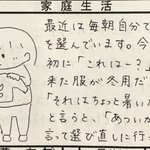 家庭生活
最近は毎朝自分で
を選んでいます。今
初に「これは〜?」
来た服が冬用だ
「それはちょっと暑い
と言うと、「あっいか
言って選び直しに行